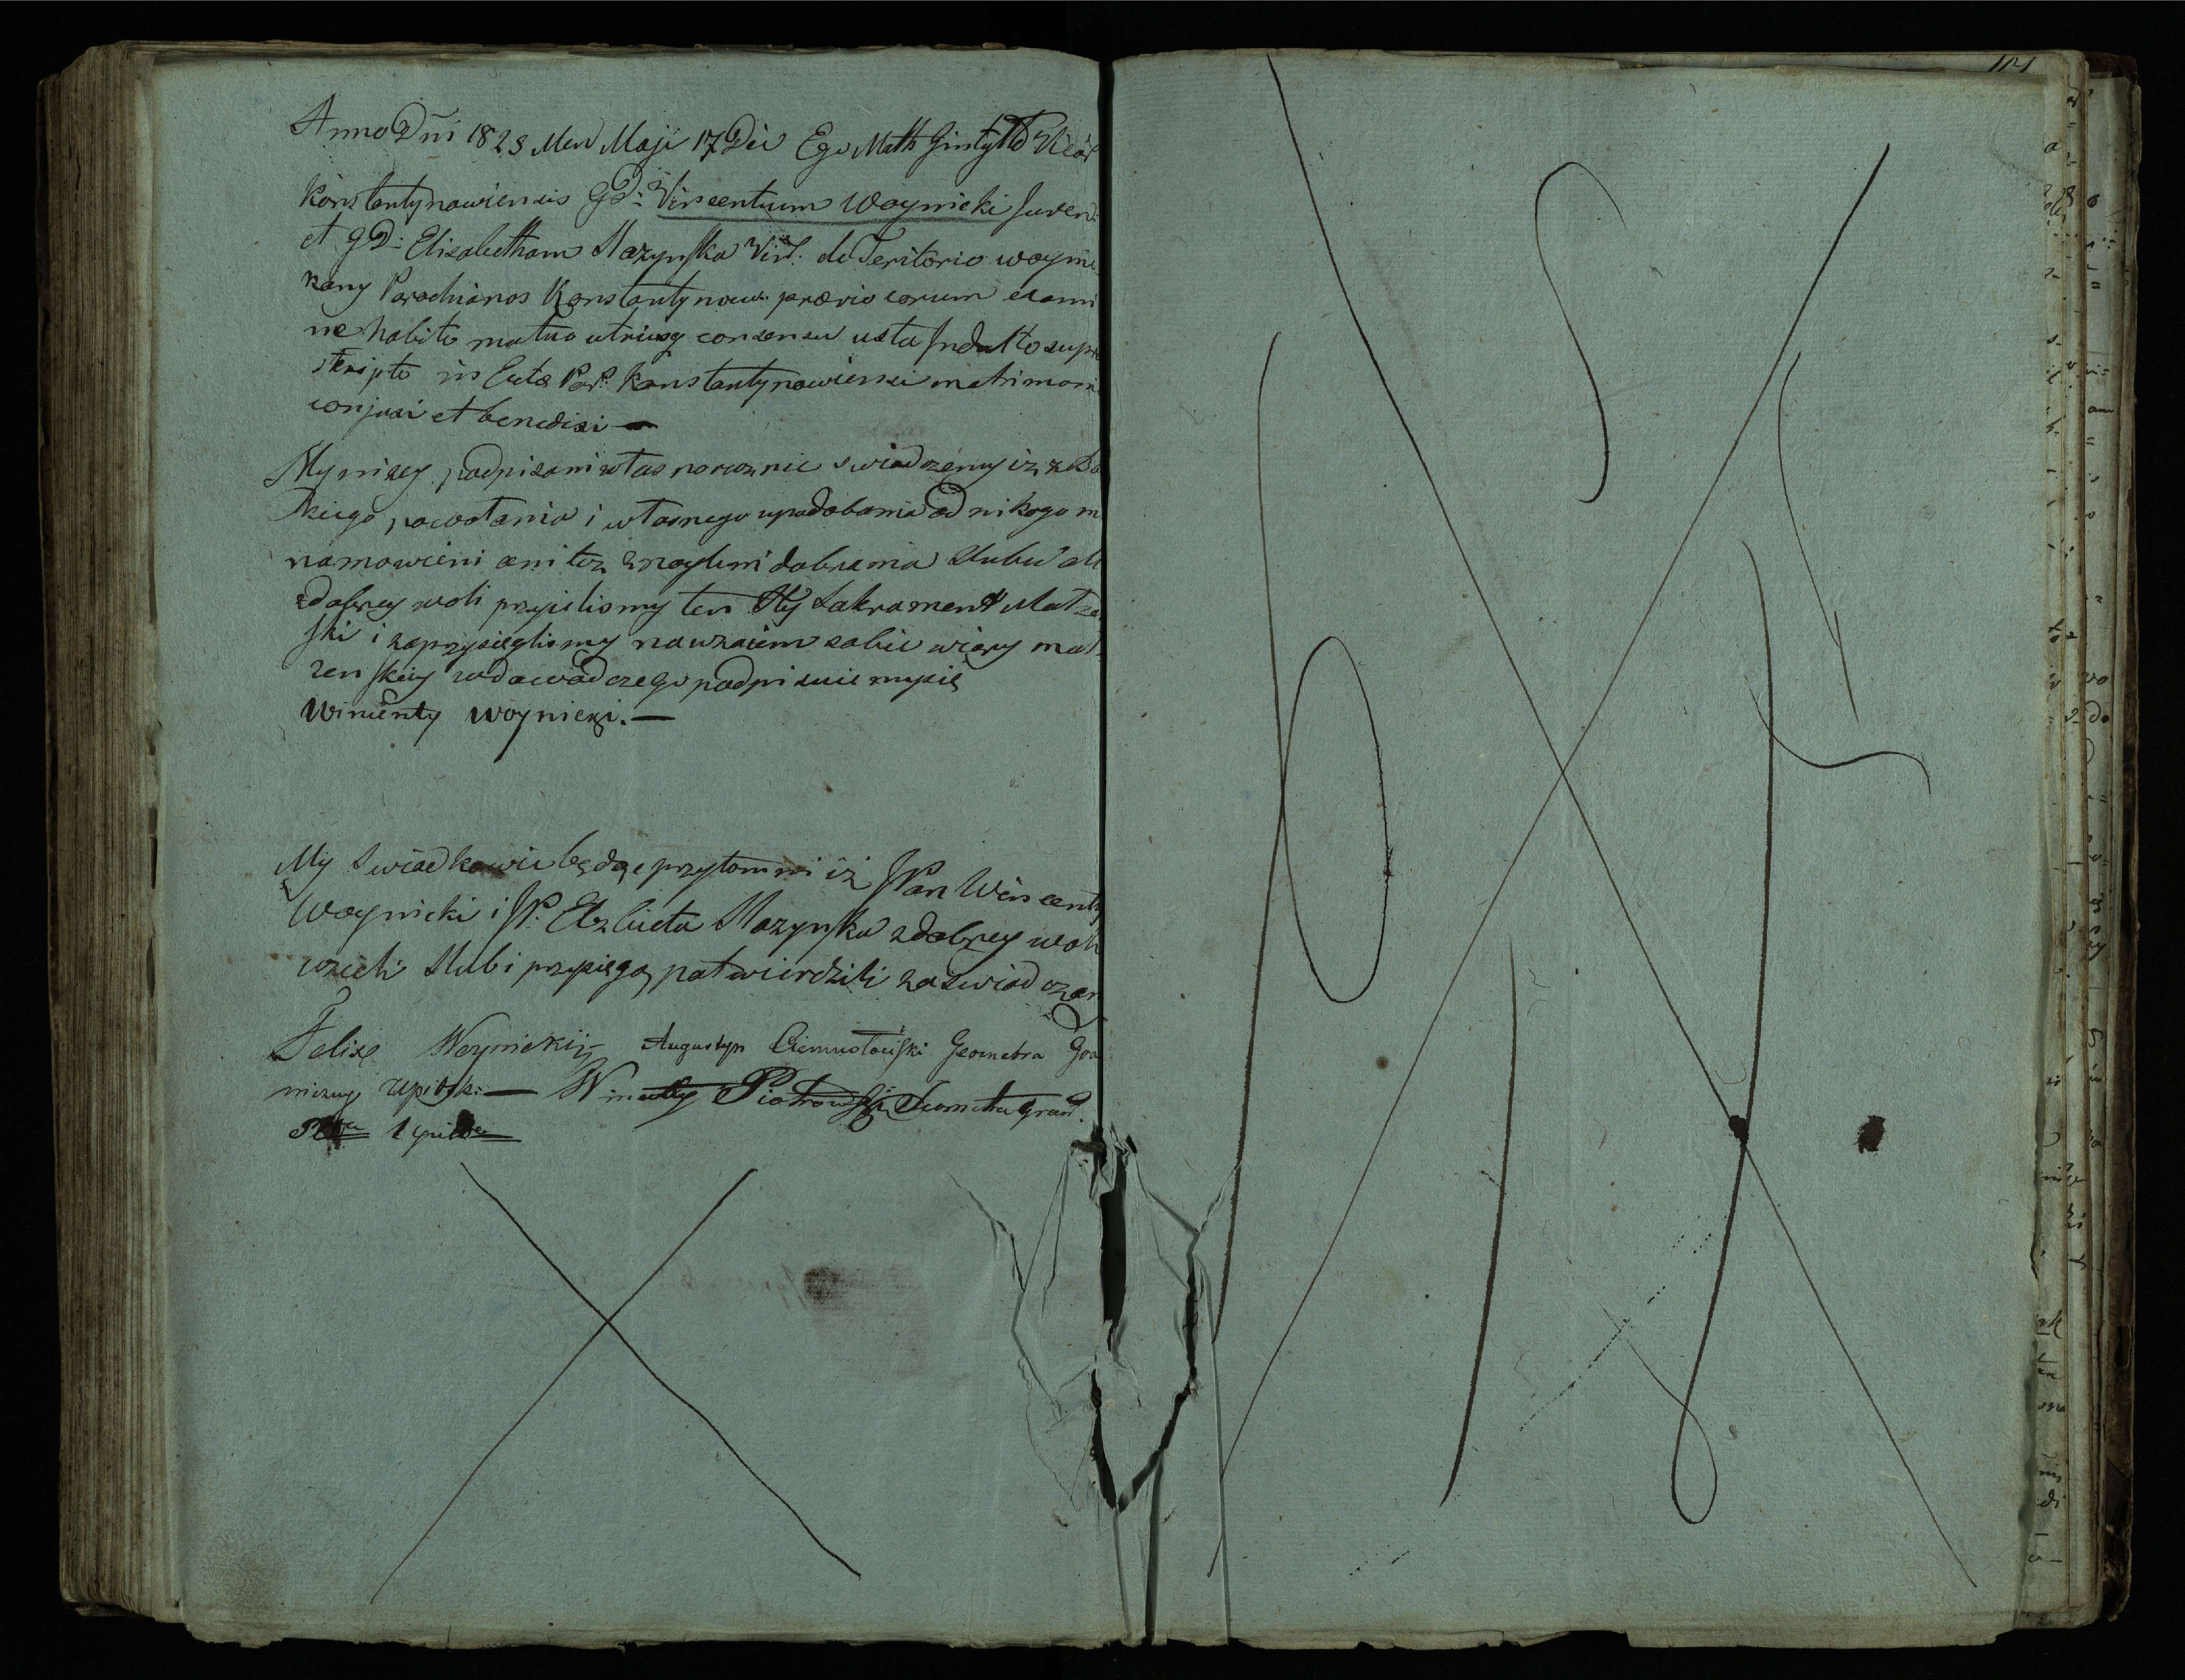 Anno Dni 1823 Men Maji 17 Die Ego Math Gintytto Vicar
Konstantynoviensis GD: Vincentum Woynicki Juven:
et GD: Elisabetham Stazynska Virl: de Teritorio woyni
kany Parochianos Konstantynow: prævio eorum exami
ne habito mutuo utriusq consensu usta Indulto supra
skripto in Eccla Par: Konstantynowiensi matrimoni
conjunxi et benedixi —
My nizey podpisani własnoręcznie swiadczemy iz z Bo
skiego powołania i własnego upodobania od nikogo
namowieni ani tez dobrama slubu
z dobrey woli przyielismy ten Sty Sakrament Małze
ski i zaprzysieglismy nawzaiem sobie wiary mał
zenskiey podpisuiemysię
Wincenty Woynicki. —
My Swiadkowie będąc przytomni iz JPan Wincenty
Woynicki i JP. Elzbieta Stazynska z dobrey woli
wzieli slub i przysięgą potwierdzili zaswiadczam
Felix Woynicki Augustyn Geometra Gra
niczny Upitski — Wincenty Piotrowski Geometra Gran.
Ptu Upitsk